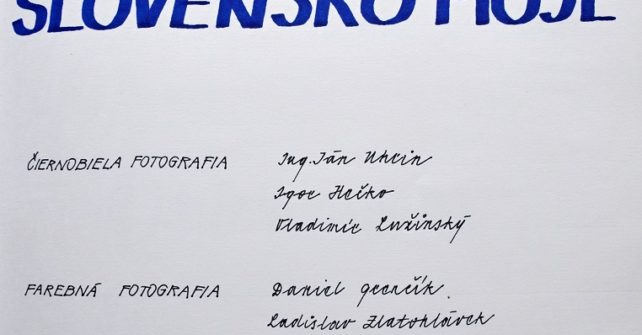 SLOVENSKO MOJE
ČIERNOBIELA FOTOGRAFIA Ing. Ján Uhrin
Igor Heško
Vladimír Lužinský
FAREBNÁ FOTOGRAFIA Daniel Grenčík
Ladislav Zlatohlávek